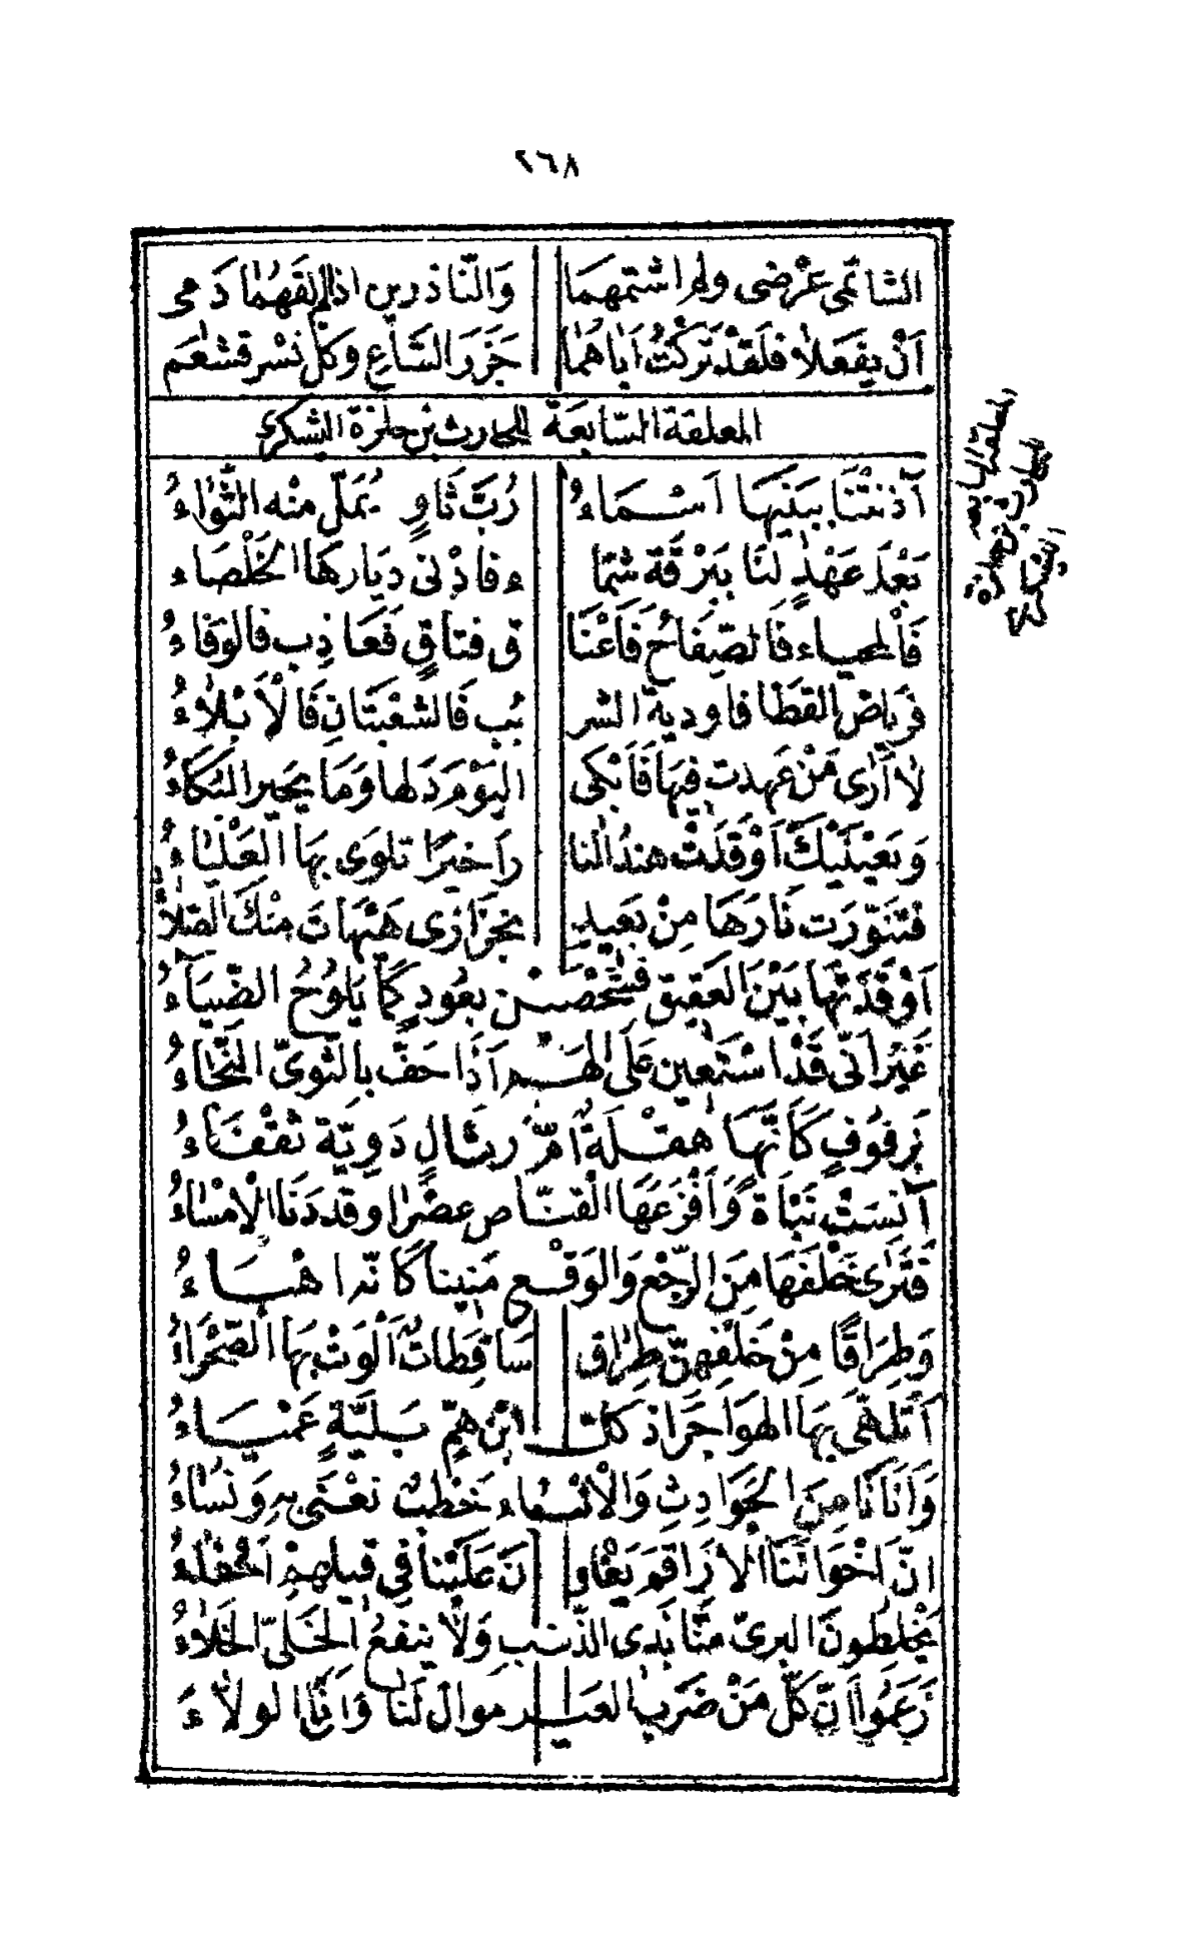 ٢٦٨
الشاتمى عرضى ولم اشتمهما وَالنّاذرين اذا لم القهما دَمى
اَنْ يفعَلا فلقدْ تركتُ اَباهُما جَزَرَ السّباعِ وكلّ نسْر قشعَم
المعلقة السّابعَة للحارث بْن حلزة اليشكرى
آذنتْنا ببَيْنهَا اَسْمَاءُ رُبّ ثاوٍ يُمَلّ منْه الثّواءُ
بَعْدَ عَهْدٍ لنَا ببَرْقَة شمّا ء فادْنى ديَارهَا الخَلْصَاء
فَالْمحياء فَالصّفاحُ فَاَعْنَا ق فتاقٍ فَعَاذِب فالوَفاءُ
فَرياضُ القَطَا فاوديةُ الشر بُب فَالشعْبَتَانِ فَالْاَبْلاءُ
لا اَرَى مَنْ عَهدت فيهَا فَاَبْكى اليَوْمَ دَلها وَمَا يحَير البُكَاءُ
وَبعَيْنَيْكَ اَوْقَدَتْ هندُ النا رَ اخيرًا تلوى بهَا العَلْيَاءُ
فتَنَوّرت نَارَهَا مِنْ بَعيدٍ بخزَازى هَيْهَاتَ منْكَ الصّلاءُ
اَوْقَدَتْهَا بَيْنَ العَقيق فشَخْصَيْن بعُودٍ كمَا يَلوُحُ الضّيَاءُ
غَيْرَ اَنّى قَدْ اسْتَعين عَلَى الهَمّ اِذَا خَفّ بالثّوىّ النّجَاءُ
بزفُوفٍ كَاَنّهَا هقْلَة اُمّ رئَالٍ دَوِيّة سَقْفَاءُ
آنسَتْ نَبْاَة وَاَفْزَعَهَا الْقنّاص عصْرًا وقددَنَا الْامْسَاءُ
فَتَرَى خَلْفَهَا مِنَ الرّجْع وَالوَقْع مَنينا كَاَنّه اهْبَاءُ
وَطرَاقًا مِنْ خَلْفِهنّ طِرَاق سَاقِطَاتٌ اَلْوَتْ بهَا الصّحْرَاءُ
اَتَلَهّى بهَا الهوَاجرَ اذ كلّ ابْن همٍّ بَليّةٍ عَمْيَاءُ
وَاَتَانَا مِنَ الحَوَادِثِ وَالْاَنْبَاء خَطْبٌ نعْنَى بهِ وَنُسَاءُ
انّ اخْوَانَنَا الاَرَاقمَ يَغْلو نَ عَلَيْنا في قيلهمْ احْفَاءُ
يَخْلطونَ البرىّ منّا بذى الذّنب وَلا ينفعُ الخَلىّ الخَلاءُ
زَعَمُوا اَنّ كلّ مَنْ ضَرَبَ العَير موال لنَا وَانّا الولاءَ
المعلقة السابعة
للحارث بن حلزة
اليشكرى